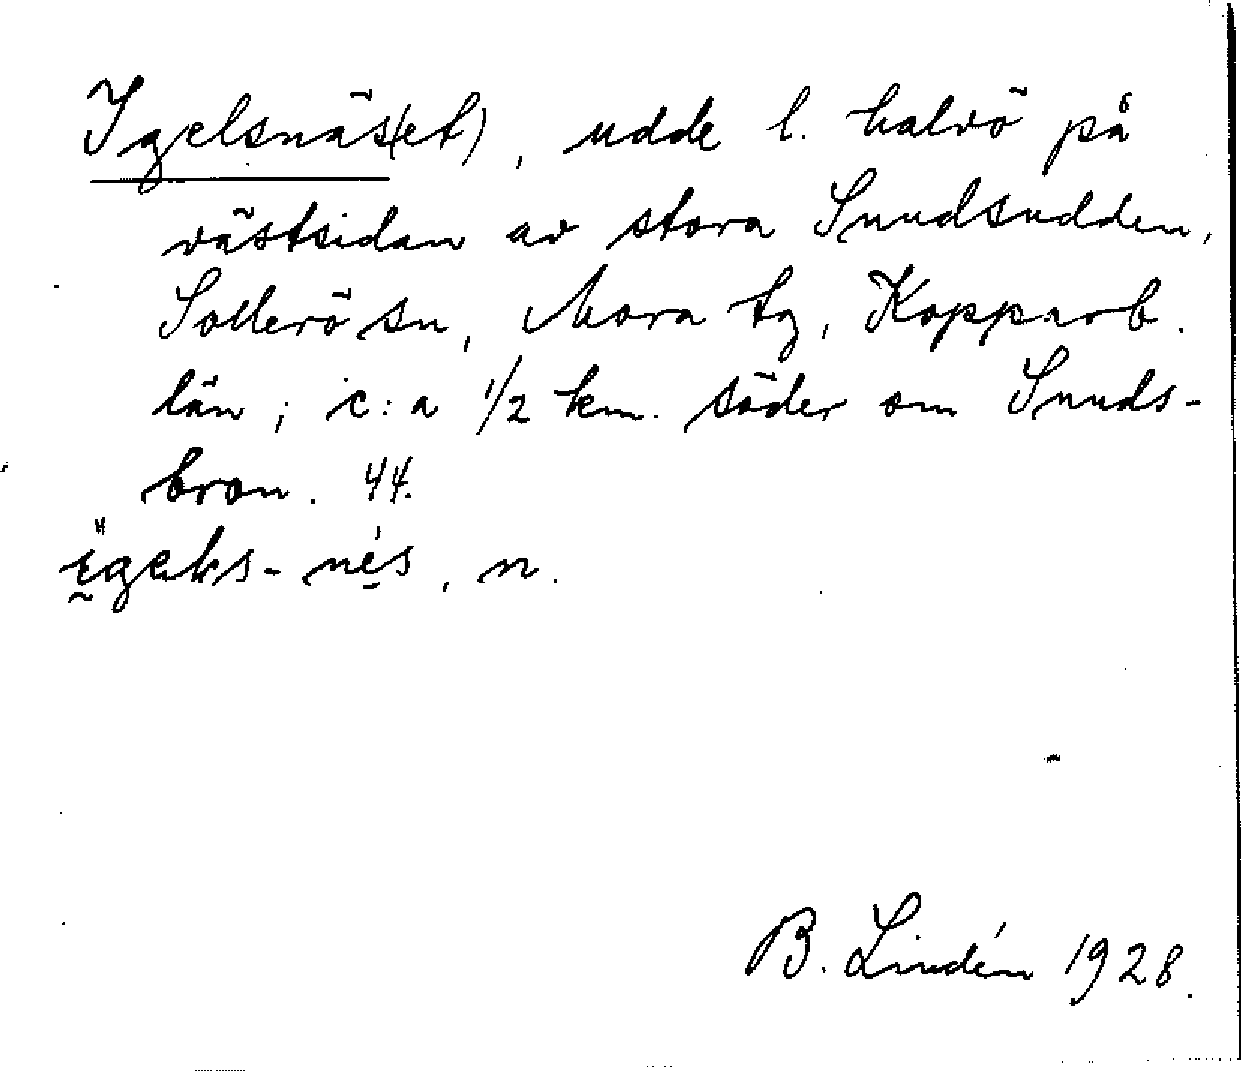 Igelsnäs(et), udde l. halvö på
västsidan av stora Sundsudden,
Sollerö sn, Mora tg, Kopparb.
län; c:a 1/2 km. söder om Sunds-
bron. 44.
n.
B. Lindén 1928.